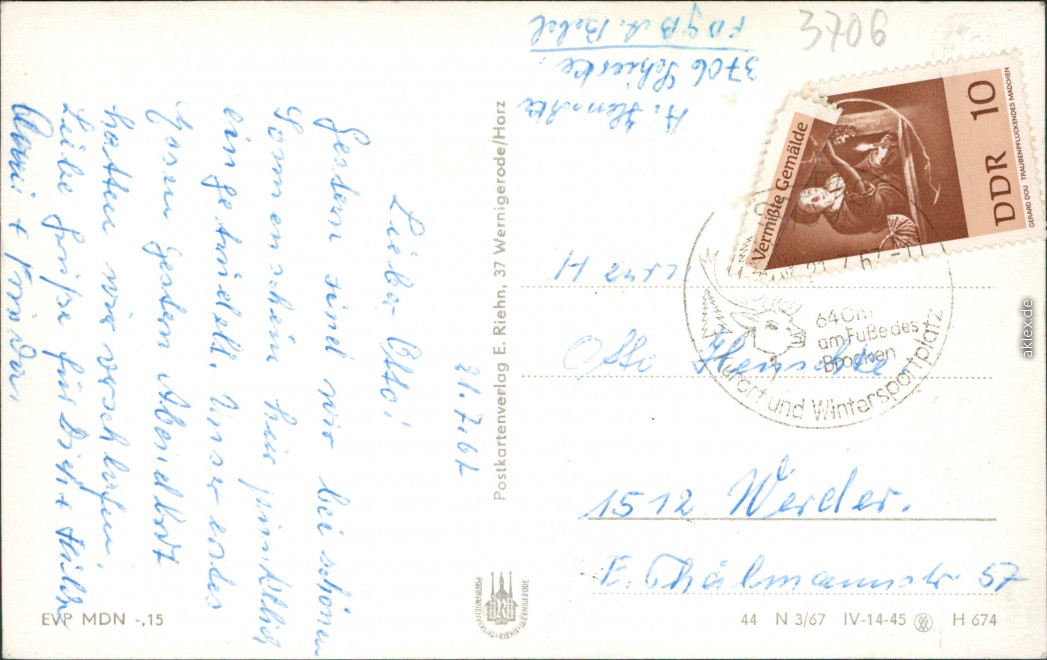 21.7.67
Lieber Otto,
Gestern sind wir bei schönem
Sonnenschein hier pünktlich
eingetrudelt. Unser erstes
gestern Abendbrot
hatten wir verschlafen.
Liebe Grüße für Dich +
+ Frieda.
Postkartenverlag E. Riehn, 37 Wernigerode/Harz
3706 Schierke,
FDGB
3706
Vermißte Gemälde
10
DDR
GERARD DOU TRAUBENPFLÜCKENDES MÄDCHEN
640m
am Fuße des
Brocken
Kurort und Wintersportplatz
Otto
1512 Werder.
E. Thälmannstr. 57
POSTKARTENVERLAG·RIEHN·WERNIGERODE
EVP MDN -,15
44 N 3/67 IV-14-45 H 674
aklex.de